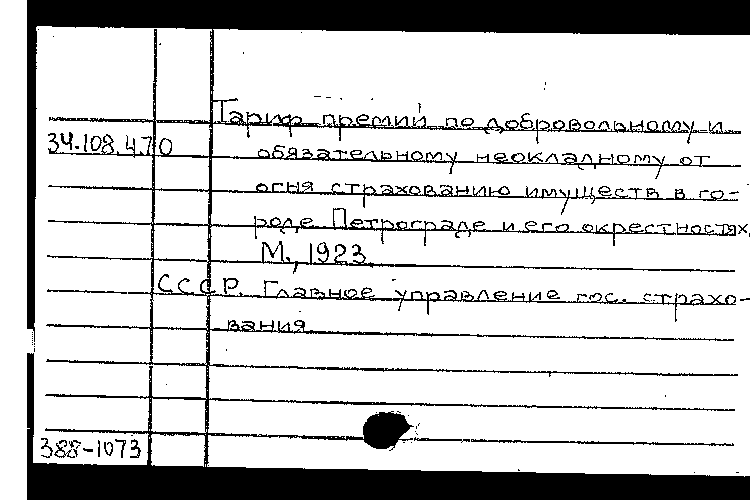 Тариф премий по добровольному и
34.108.470
обязательному неокладному от
огня страхованию имуществ в го-
роде Петрограде и его окрестностях.
М., 1923.
СССР. Главное управление гос. страхо-
вания.
388-1073